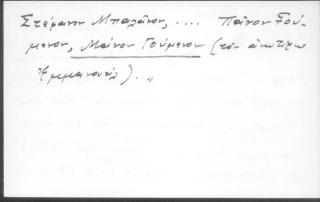 Στέφανον Μπαλάνον, .... Πάνον Γού-
μενον, Μάνον Γούμενον (τὸν ἀνωτέρω
Ἐμμανουήλ). "